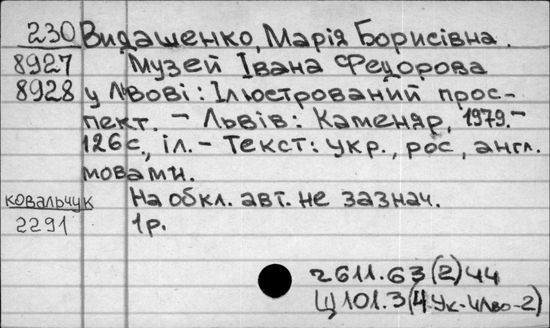 230 Видашенко, Марія Борисівна.
8927 Музей Івана Федорова
8928 у Львові: Ілюстрований прос-
пект. - Львів: Каменяр, 1979.-
126с., іл. - Текст: укр., рос, англ.
мовами.
Ковальчук На обкл. авт. не зазнач.
2291 1р.
ч611.63(2)44
Щ101.3(4Ук-4Льво-2)